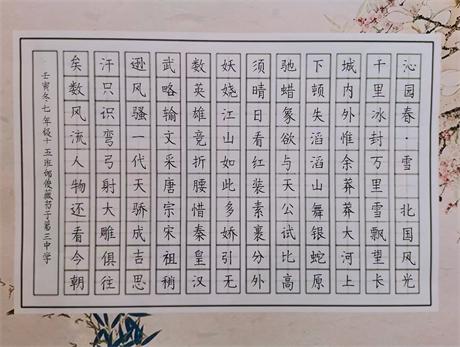 沁园春·雪 北国风光
千里冰封万里雪飘望长
城内外惟余莽莽大河上
下顿失滔滔山舞银蛇原
驰蜡象欲与天公试比高
须晴日看红装素裹分外
妖娆江山如此多娇引无
数英雄竞折腰惜秦皇汉
武略输文采唐宗宋祖稍
逊风骚一代天骄成吉思
汗只识弯弓射大雕俱往
矣数风流人物还看今朝
壬寅冬七年级十五班书于第三中学